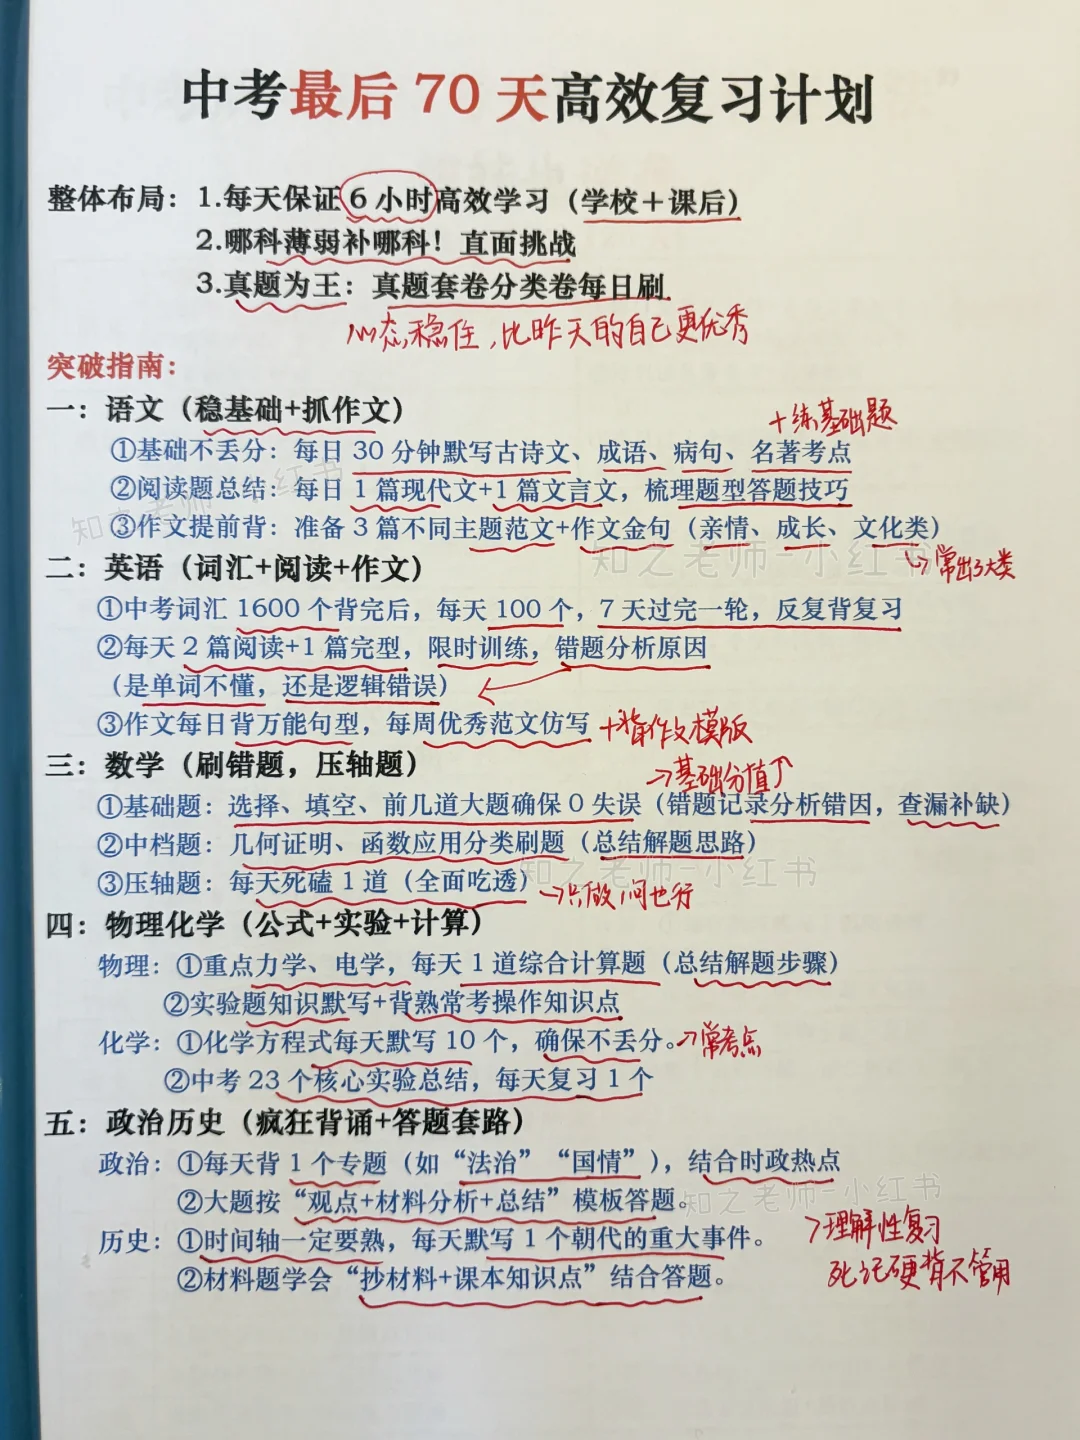 中考最后 70 天高效复习计划
整体布局：1.每天保证 6 小时高效学习（学校＋课后）
2.哪科薄弱补哪科！直面挑战
3.真题为王：真题套卷分类卷每日刷
心态稳住，比昨天的自己更优秀
突破指南：
一：语文（稳基础+抓作文）
+练基础题
①基础不丢分：每日 30 分钟默写古诗文、成语、病句、名著考点
②阅读题总结：每日 1 篇现代文+1 篇文言文，梳理题型答题技巧
③作文提前背：准备 3 篇不同主题范文+作文金句（亲情、成长、文化类）
知之老师-小红书
知之老师-小红书
二：英语（词汇+阅读+作文）
→常出3大类
①中考词汇 1600 个背完后，每天 100 个，7 天过完一轮，反复背复习
②每天 2 篇阅读+1 篇完型，限时训练，错题分析原因
（是单词不懂，还是逻辑错误）
③作文每日背万能句型，每周优秀范文仿写
+背作文模版
三：数学（刷错题，压轴题）
→基础分值↑
①基础题：选择、填空、前几道大题确保 0 失误（错题记录分析错因，查漏补缺）
②中档题：几何证明、函数应用分类刷题（总结解题思路）
知之老师-小红书
③压轴题：每天死磕 1 道（全面吃透）
→只做1问也行
四：物理化学（公式+实验+计算）
物理：①重点力学、电学，每天 1 道综合计算题（总结解题步骤）
②实验题知识默写+背熟常考操作知识点
化学：①化学方程式每天默写 10 个，确保不丢分。
→常考点
②中考 23 个核心实验总结，每天复习 1 个
五：政治历史（疯狂背诵+答题套路）
政治：①每天背 1 个专题（如“法治”“国情”），结合时政热点
②大题按“观点+材料分析+总结”模板答题。
知之老师-小红书
历史：①时间轴一定要熟，每天默写 1 个朝代的重大事件。
→理解性复习
死记硬背不管用
②材料题学会“抄材料+课本知识点”结合答题。